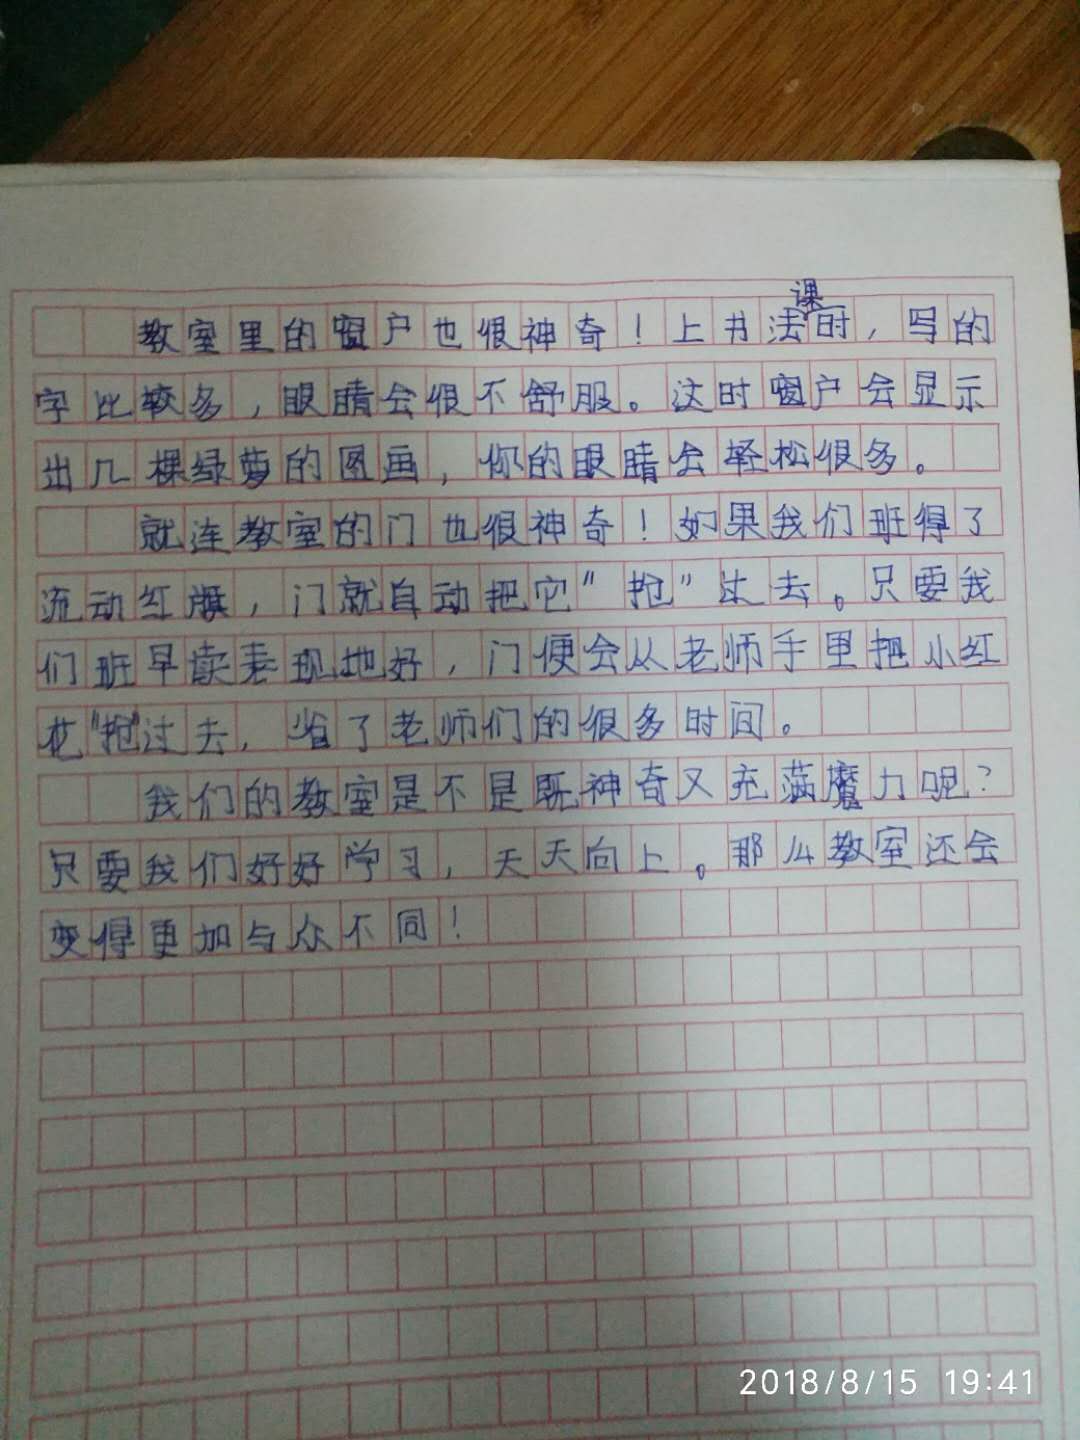 教室里的窗户也很神奇！上书法课时，写的
字比较多，眼睛会很不舒服。这时窗户会显示
出几棵绿萝的图画，你的眼睛会轻松很多。
就连教室的门也很神奇！如果我们班得了
流动红旗，门就自动把它"抢"过去。只要我
们班早读表现地好，门便会从老师手里把小红
花"抢"过去，省了老师们的很多时间。
我们的教室是不是既神奇又充满魔力呢？
只要我们好好学习，天天向上。那么教室还会
变得更加与众不同！
2018/8/15 19:41